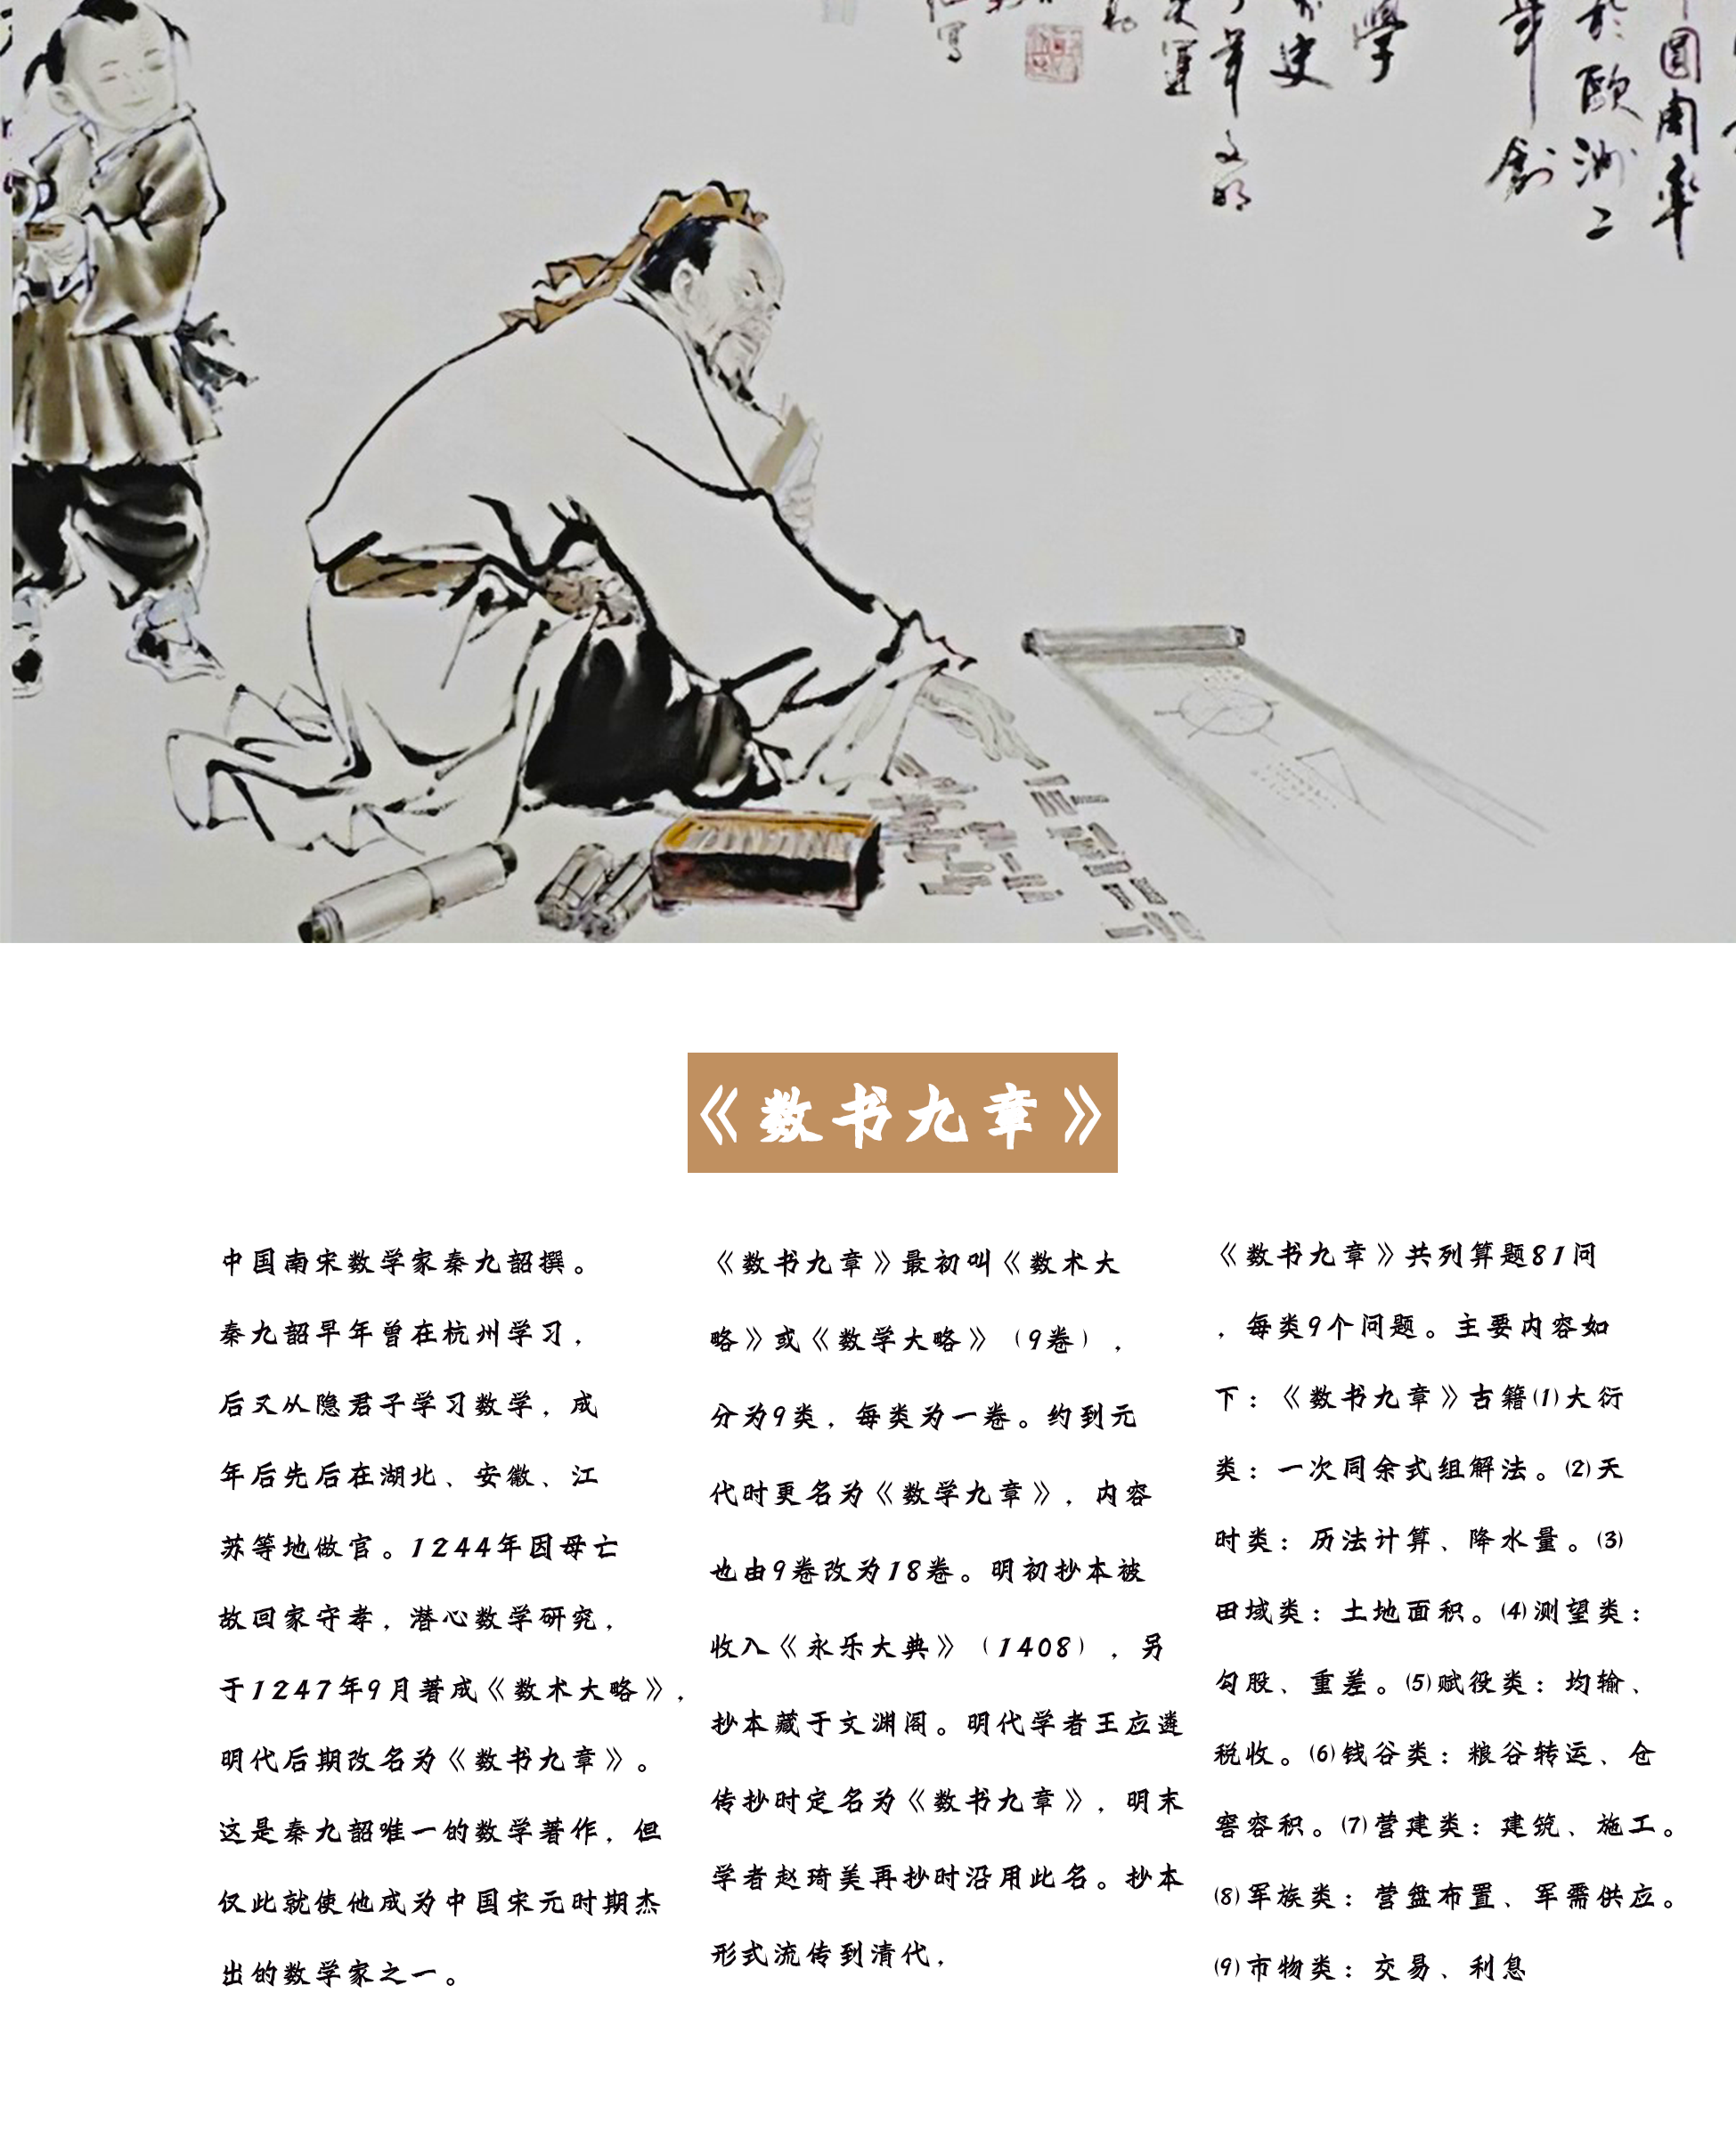 學
史
年文明
運
寫
圓周率
於歐洲二
年創
《数书九章》
中国南宋数学家秦九韶撰。
秦九韶早年曾在杭州学习，
后又从隐君子学习数学，成
年后先后在湖北、安徽、江
苏等地做官。1244年因母亡
故回家守孝，潜心数学研究，
于1247年9月著成《数术大略》，
明代后期改名为《数书九章》。
这是秦九韶唯一的数学著作，但
仅此就使他成为中国宋元时期杰
出的数学家之一。
《数书九章》最初叫《数术大
略》或《数学大略》（9卷），
分为9类，每类为一卷。约到元
代时更名为《数学九章》，内容
也由9卷改为18卷。明初抄本被
收入《永乐大典》（1408），另
抄本藏于文渊阁。明代学者王应遴
传抄时定名为《数书九章》，明末
学者赵琦美再抄时沿用此名。抄本
形式流传到清代，
《数书九章》共列算题81问
，每类9个问题。主要内容如
下：《数书九章》古籍⑴大衍
类：一次同余式组解法。⑵天
时类：历法计算、降水量。⑶
田域类：土地面积。⑷测望类：
勾股、重差。⑸赋役类：均输、
税收。⑹钱谷类：粮谷转运、仓
窖容积。⑺营建类：建筑、施工。
⑻军族类：营盘布置、军需供应。
⑼市物类：交易、利息